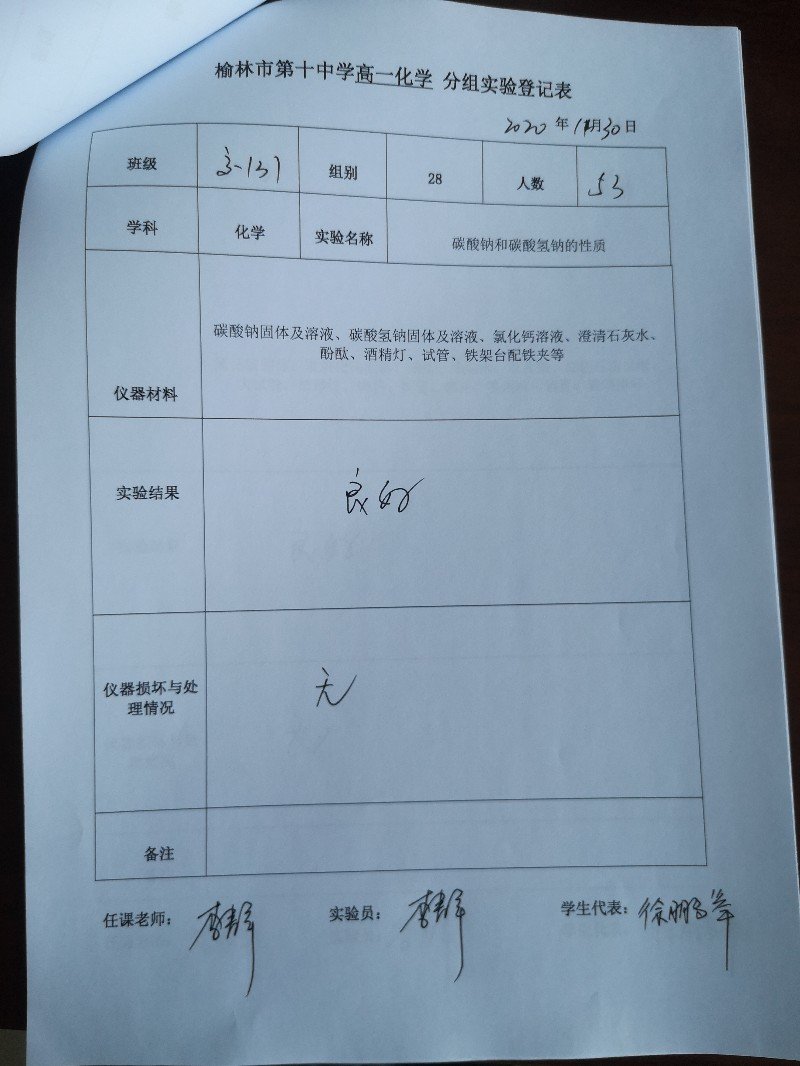 榆林市第十中学高一化学 分组实验登记表
2020 年 11月30日
班级 高一(3) 组别 28 人数 53
学科 化学 实验名称 碳酸钠和碳酸氢钠的性质
碳酸钠固体及溶液、碳酸氢钠固体及溶液、氯化钙溶液、澄清石灰水、
酚酞、酒精灯、试管、铁架台配铁夹等
仪器材料
实验结果 良好
仪器损坏与处
理情况
无
备注
任课老师: 实验员: 学生代表: